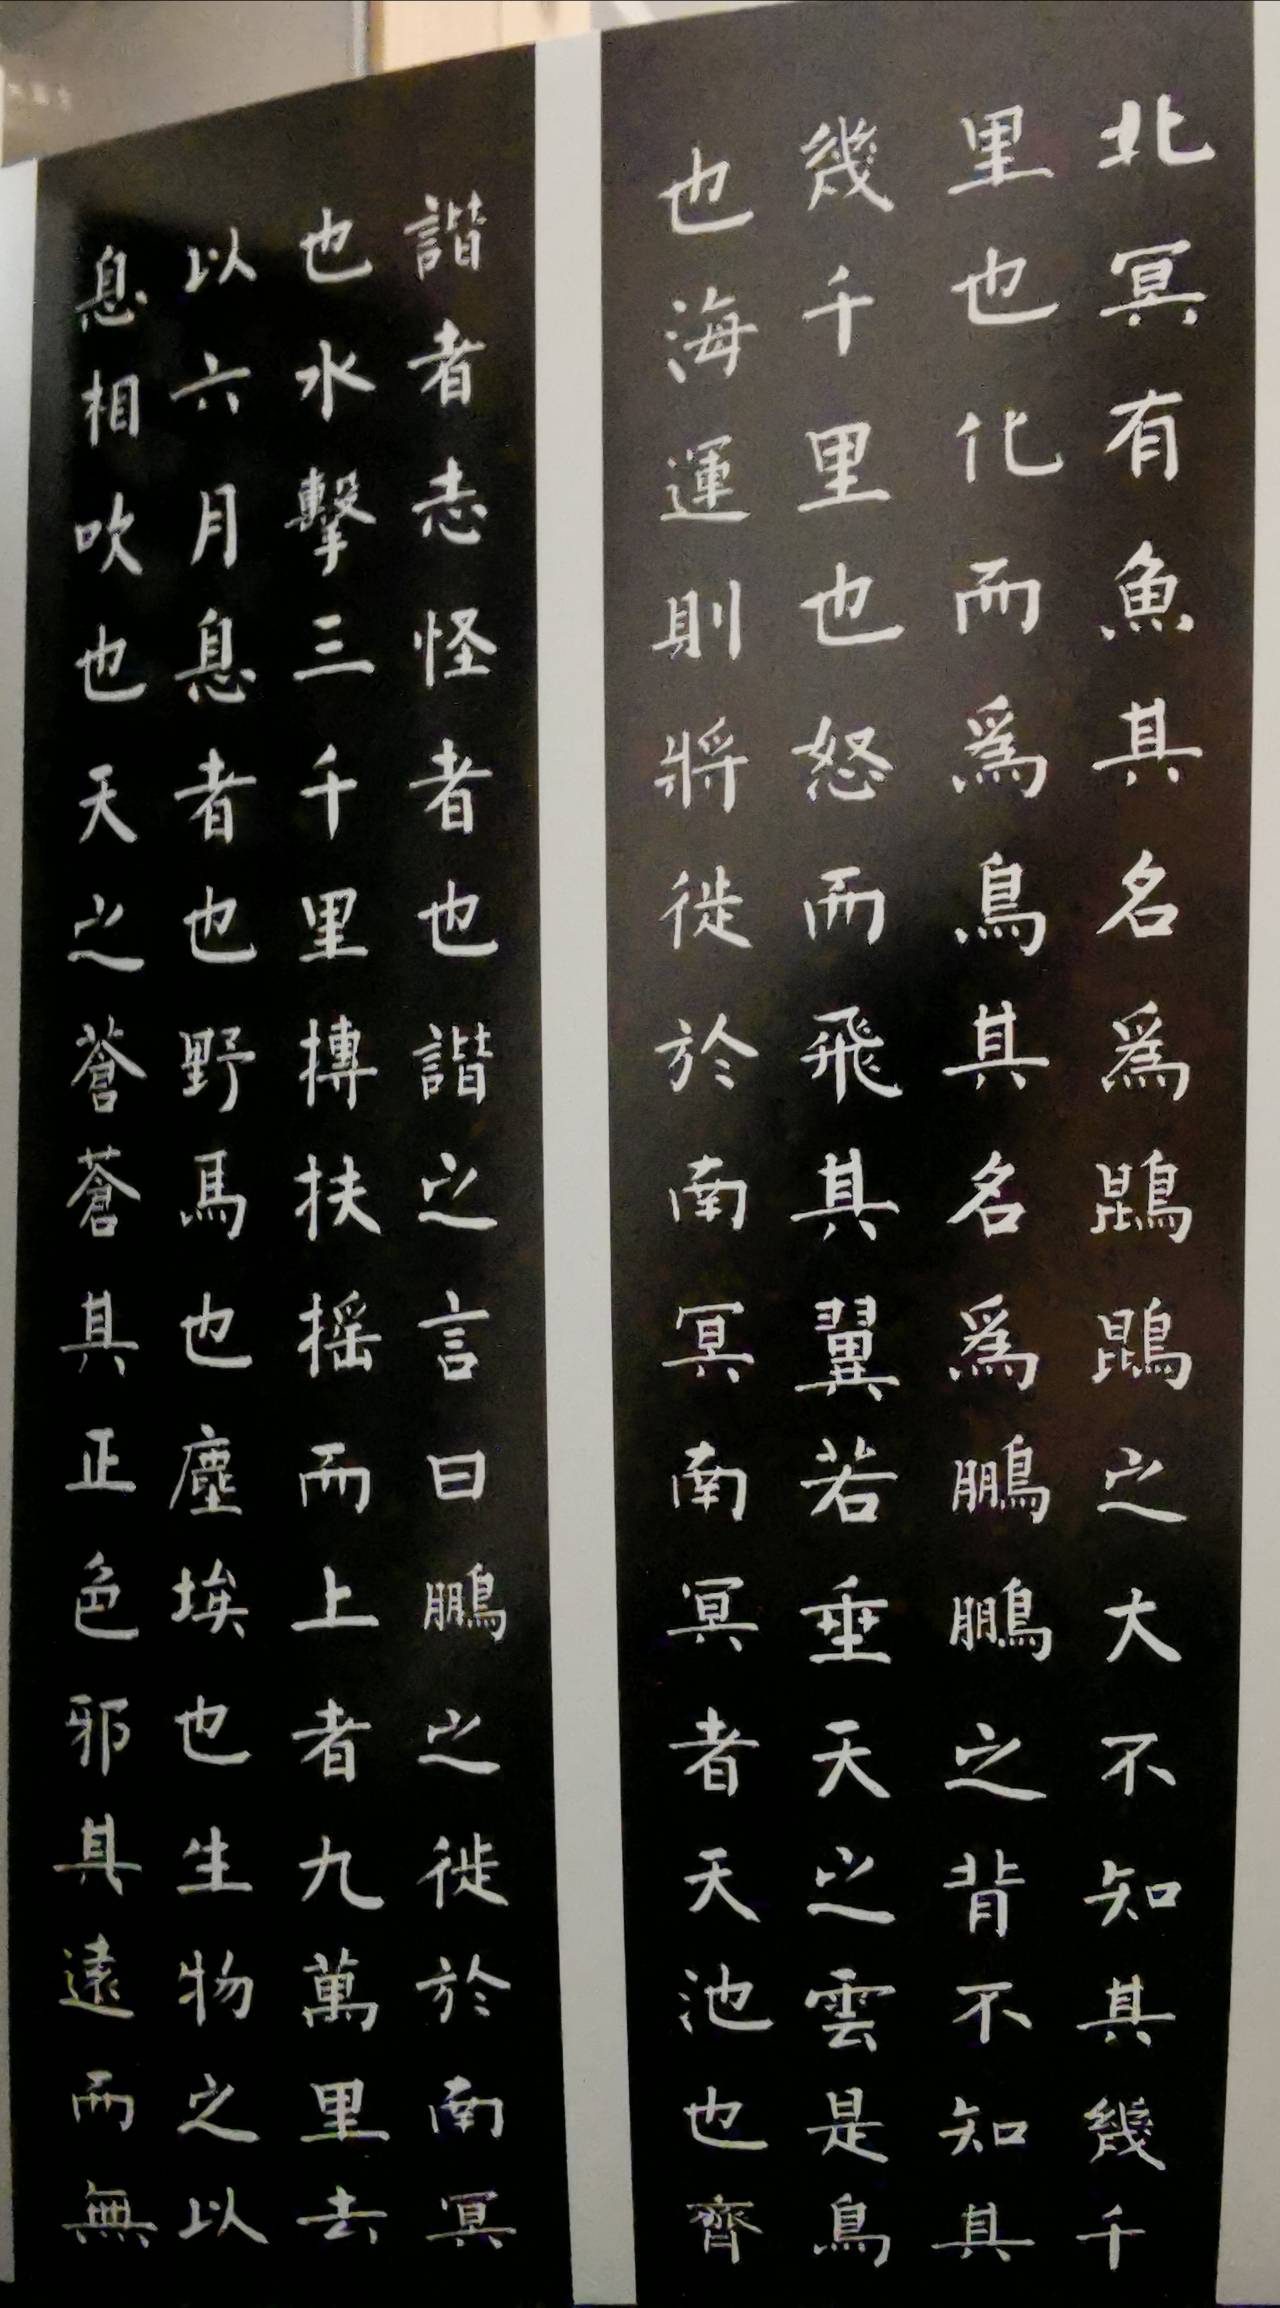 北冥有魚其名爲鵾鵾之大不知其幾千
里也化而爲鳥其名爲鵬鵬之背不知其
幾千里也怒而飛其翼若垂天之雲是鳥
也海運則將徙於南冥南冥者天池也齊
諧者志怪者也諧之言曰鵬之徙於南冥
也水擊三千里摶扶摇而上者九萬里去
以六月息者也野馬也塵埃也生物之以
息相吹也天之蒼蒼其正色邪其遠而無